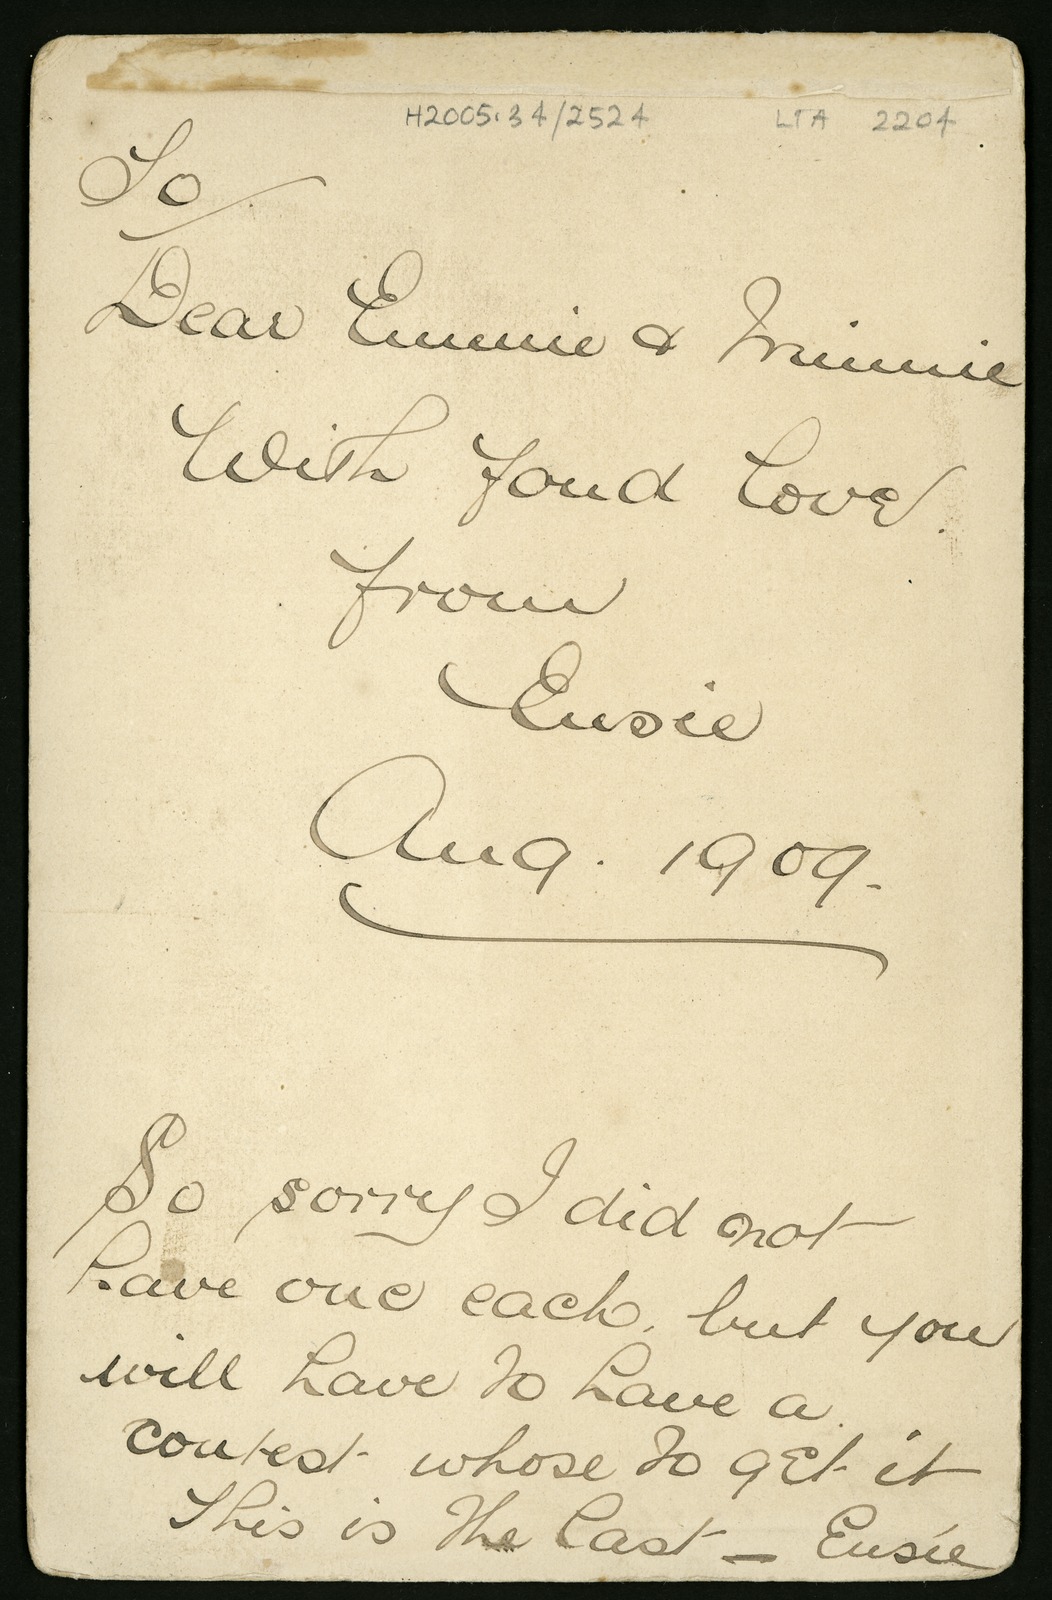 H2005.34/2524 LTA 2204
To/
Dear Emmie & Minnie
With fond love.
from
Ensie
Aug. 1909.
So sorry I did not
have one each, but you
will have to have a
contest whose to get it
This is the last – Ensie